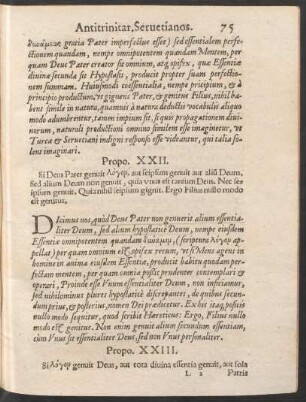 Antitrinitar. Seruetianos. 75
δυνάμεως gratia Pater imperfectior esset) sed essentialem perfe-
ctionem quandam, nempe omnipotentem quandam Mentem, per
quam Deus Pater creator sit omnium, quæ Essentiæ
diuina secunda sit Hypostasis, producit propter suam perfectio-
nem summam. Huiusmodi coessentialia, nempe principium, & à
principio productum, vt gignens Pater, & genitus Filius, nihil ha-
bent simile in natura, quamuis à natura deductis vocabulis aliquo
modo adumbrentur, tamen impium sit, si quis propagationem diui-
norum, naturali productioni omnino similem esse imaginetur, vt
Turcæ & Seruetiani indigni responso esse videantur, qui talia so-
lent imaginari.
Propo. XXII.
Si Deus Pater genuit λόγον, aut seipsum genuit aut aliũ Deum,
sed alium Deum non genuit, quia vnus est tantùm Deus. Nec se-
ipsum genuit, Quia nihil seipsum gignit. Ergo Filius nullo modo
est genitus.
Dicimus nos, quòd Deus Pater non genuerit alium essentia-
liter Deum, sed alium hypostaticè Deum, nempe eiusdem
Essentiæ omnipotentem quandam δύναμιν, (scriptura λόγον ap-
pellat) per quam omnium sit rerum, vt si Mens agens in
homine in anima eiusdem Essentiæ, producit habitu quodam per-
fectam mentem, per quam omnia possit prudenter contemplari &
operari, Proinde esse Vnum essentialiter Deum, non inficiamur,
sed nihilominus patres hypostaticè discrepantes, de quibus secun-
dum prius, & posterius, nomen Dei prædicetur. Ex his itaq; positis
nullo modo sequitur, quod scribit Hæreticus: Ergo, Filius nullo
modo est genitus. Non enim genuit alium secundùm essentiam,
cùm Vnus sit essentialiter Deus, sed non Vnus personaliter.
Propo. XXIII.
Si λόγον genuit Deus, aut tota diuina essentia genuit, aut sola
L 2 Patris